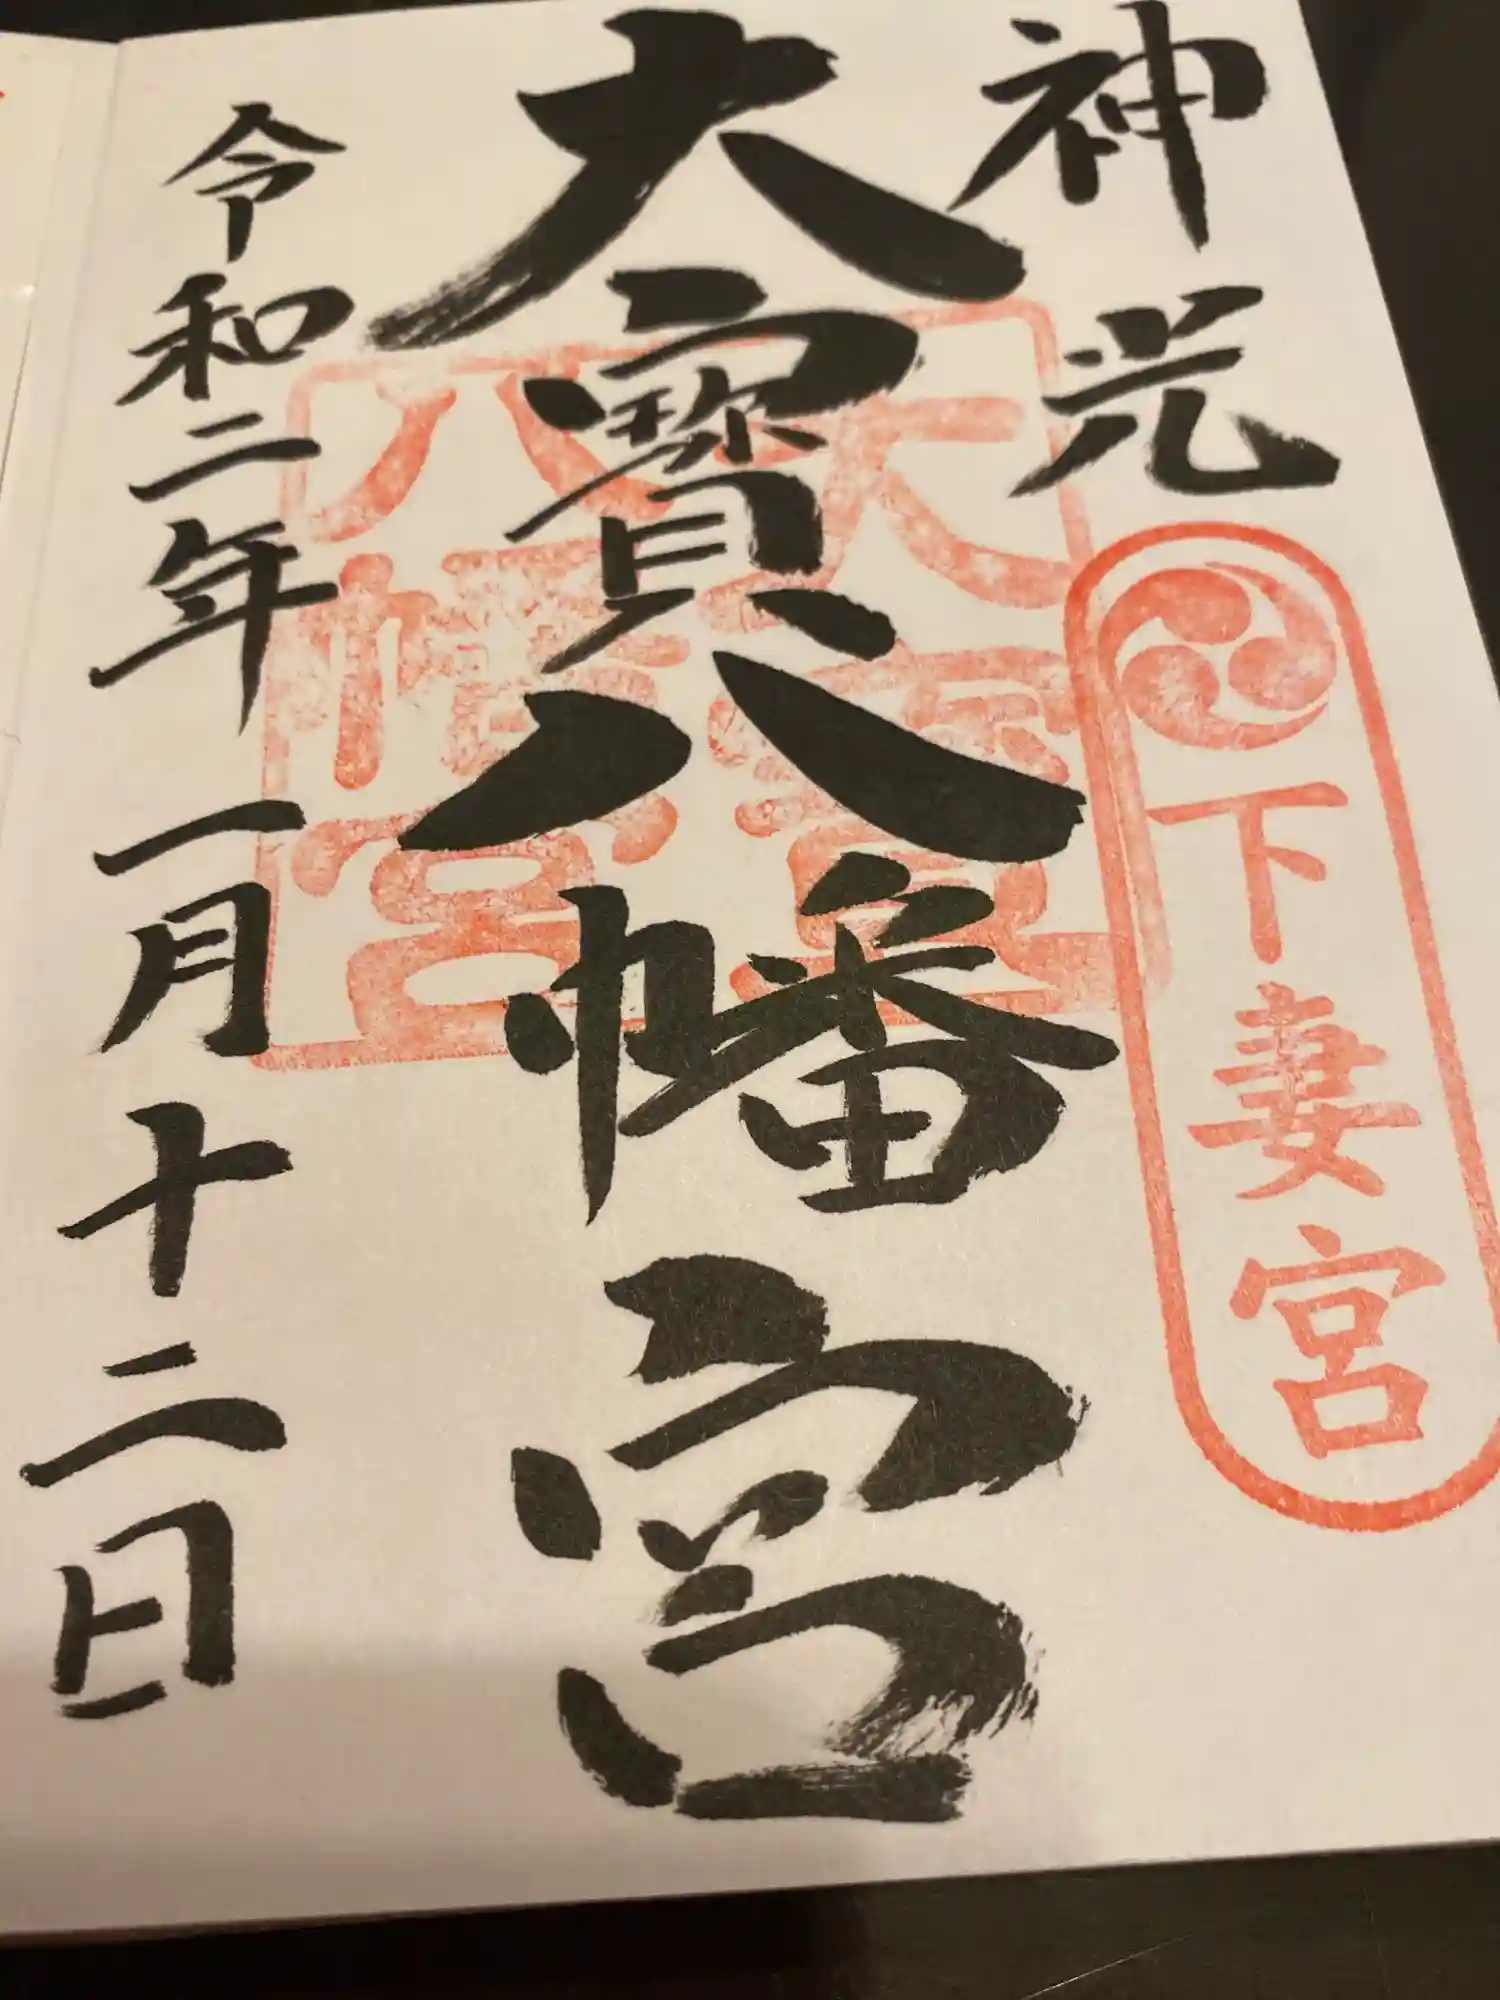 神光
下妻宮
大寶八幡宮
大寶
八幡宮
令和二年一月十二日